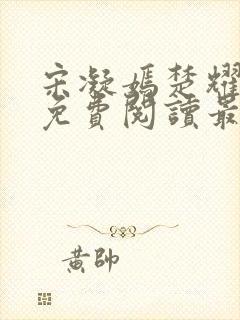 宋凝嫣楚耀
免費閱讀最
黃帥